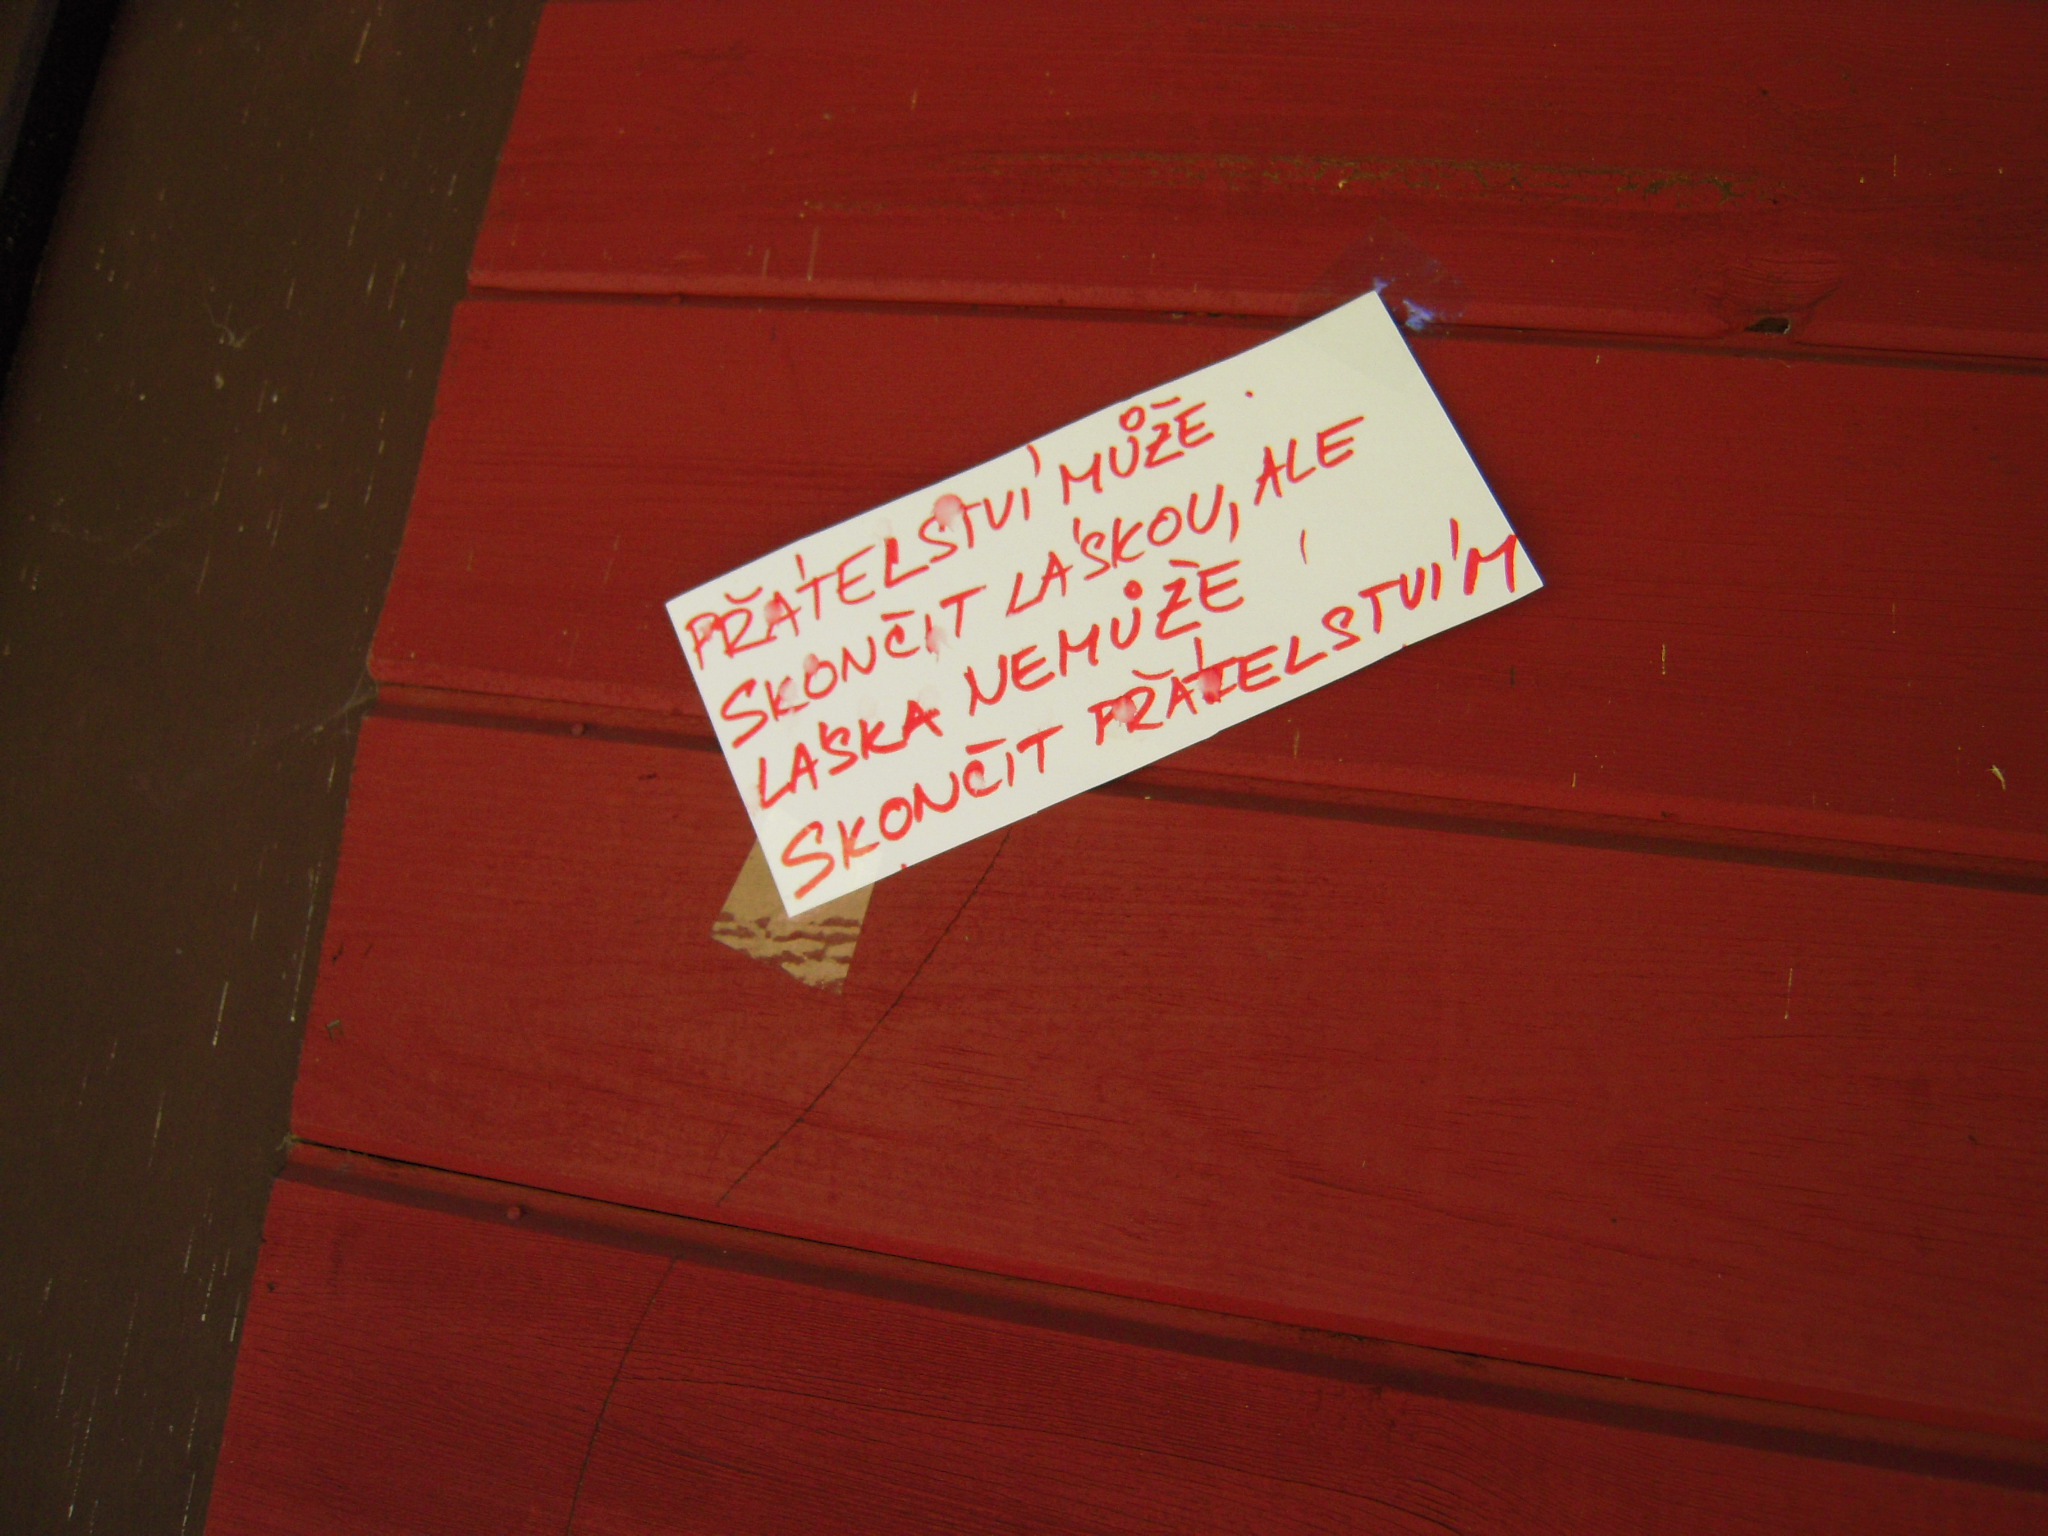 PŘÁTELSTVÍ MŮŽE
SKONČIT LÁSKOU, ALE
LÁSKA NEMŮŽE
SKONČIT PŘÁTELSTVÍM